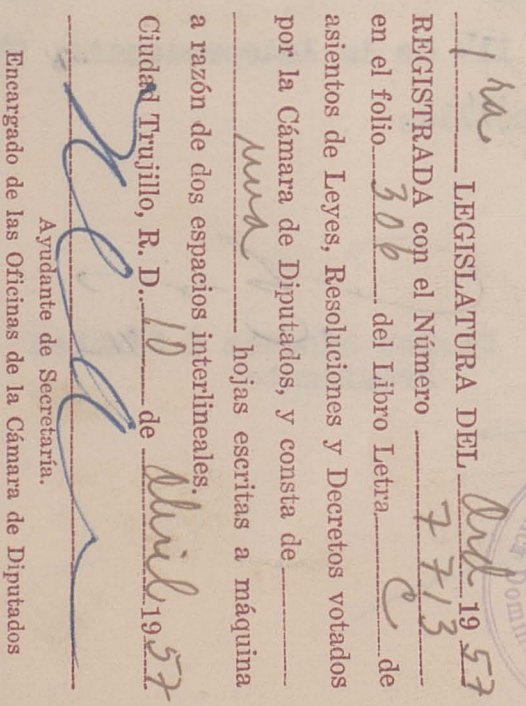 1ra LEGISLATURA DEL Ord 1957
REGISTRADA con el Número 7713
en el folio 306 del Libro Letra C de
asientos de Leyes, Resoluciones y Decretos votados
por la Cámara de Diputados, y consta de
una hojas escritas a máquina
a razón de dos espacios interlineales.
Ciudad Trujillo, R. D. 10 de Abril 1957
Ayudante de Secretaría.
Encargado de las Oficinas de la Cámara de Diputados